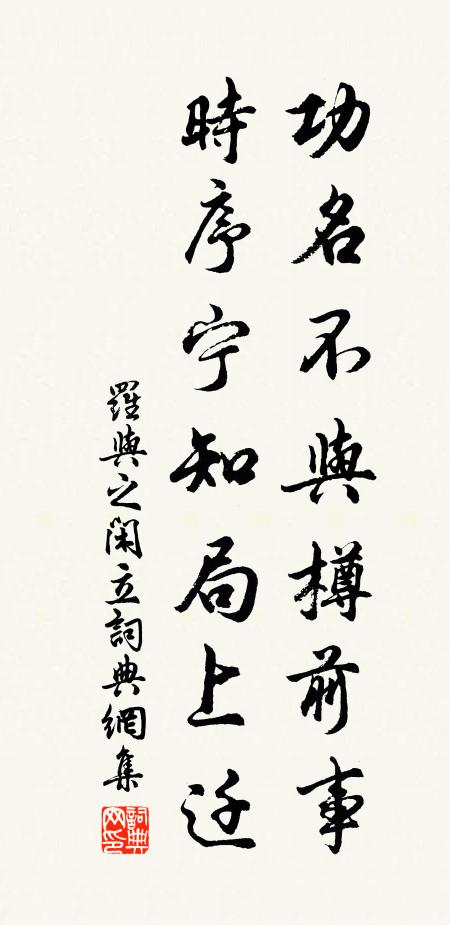 功名不與樽前事
時序宁知局上迁
羅與之閑立詞典網集
詞典网印